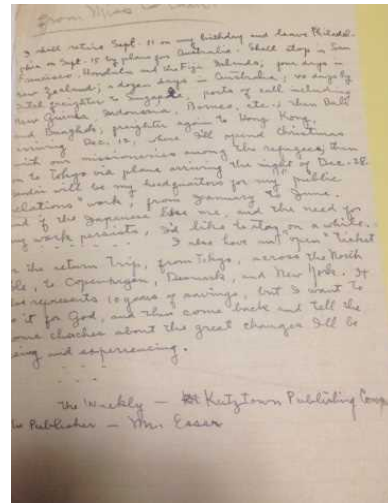 From Miss
I shall retire Sept. 11 on my birthday and leave Philadel-
phia on Sept. 15 by plane for Australia. Shall stop in San
Francisco, Honolulu and the Fiji Islands; four days in
New Zealand; a dozen days in Australia; via
freighter to ports of call including
New Guinea, Indonesia, Borneo, etc. Then Bali
and Bangkok; freighter again to Hong Kong,
arriving Dec. 18, where I'll spend Christmas
with our missionaries among the refugees, then
on to Tokyo via plane arriving the night of Dec. 28
will be my headquarters for my "public
relations" work, from January to June.
and if the Japanese like me, and the need for
my work persists, I'd like to stay on a while.
I also have an "open" ticket
the return trip, from Tokyo, across the North
Pole, to Copenhagen, Denmark, and New York. It
represents 10 years of savings, but I want to
do it for God, and then come back and tell the
home churches about the great changes I'll be
seeing and experiencing.
The Weekly — Kutztown Publishing Comp
Publisher — Mr. Esser